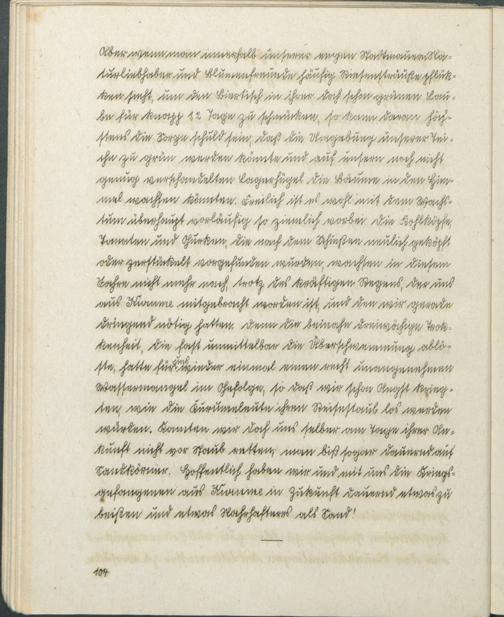 Aber wenn man innerhalb unserer engen Stadtmauern Na-
turliebhaber und Blumenfreunde häufig Riesensträuße schlük-
ken sieht, um den Biertisch in ihrer doch schon grünen Lau-
be für knapp 1/2 Tage zu schmücken, so kann daran höch-
stens die Sorge schuld sein, daß die Umgebung unserer Tei-
che zu grün werden könnte und auf unsern noch nicht
genug verschandelten Lagerhügel die Bäume in den Him-
mel wachsen könnten. Freilich ist es wohl mit dem Wachs-
tum überhaupt vorläufig so ziemlich vorbei. Die Kohlköpfe
Tomaten und Gurken, die nach dem Schießen neulich geköpft
oder zerstückelt vorgefunden wurden, wachsen in diesem
Jahre nicht mehr nach, trotz des kräftigen Regens, der uns
aus Kurume mitgebracht worden ist, und den wir gerade
dringend nötig hatten. Denn die beinahe dreiwöchige Trok-
kenheit, die fast unmittelbar die Überschwemmung ablö-
ste, hatte für uns wieder einmal einen recht unangenehmen
Wassermangel im Gefolge, so daß wir schon Angst krieg-
ten, wie die Kurumeleute ihren Reisestaub los werden
würden. Konnten wir doch uns selber am Tage ihrer An-
kunft nicht vor Staub retten, man biß sogar dauernd auf
Sandkörner. Hoffentlich haben wir und mit uns die Kriegs-
gefangenen aus Kurume in Zukunft dauernd etwas zu
beißen und etwas Nahrhafteres als Sand!
104